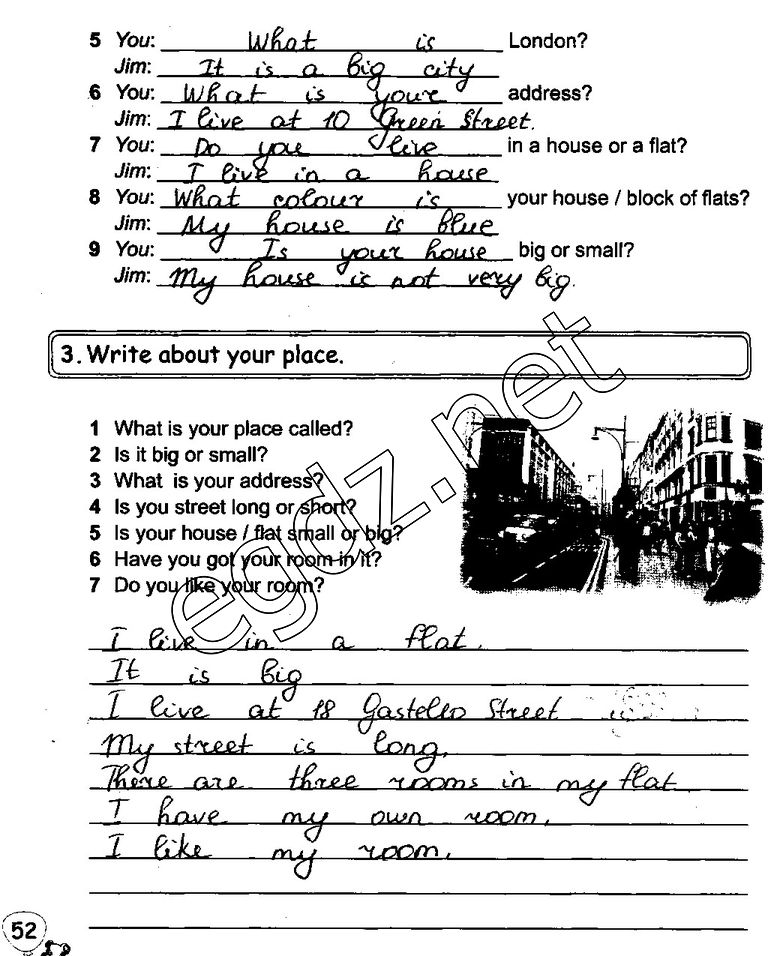 5 You: What is London?
Jim: It is a big city
6 You: What is your address?
Jim: I live at 10 Green Street.
7 You: Do you live in a house or a flat?
Jim: I live in a house
8 You: What colour is your house / block of flats?
Jim: My house is blue
9 You: Is your house big or small?
Jim: My house is not very big.
3. Write about your place.
1 What is your place called?
2 Is it big or small?
3 What is your address?
4 Is you street long or short?
5 Is your house / flat small or big?
6 Have you got your room in it?
7 Do you like your room?
egdz.net
I live in a flat.
It is big
I live at 18 Gastello Street
My street is long.
There are three rooms in my flat
I have my own room.
I like my room.
52